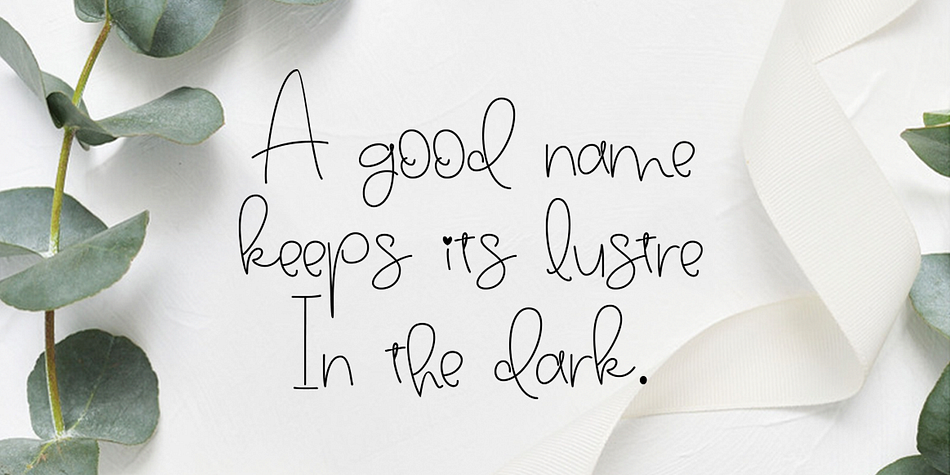 A good name
keeps its lustre
In the dark.